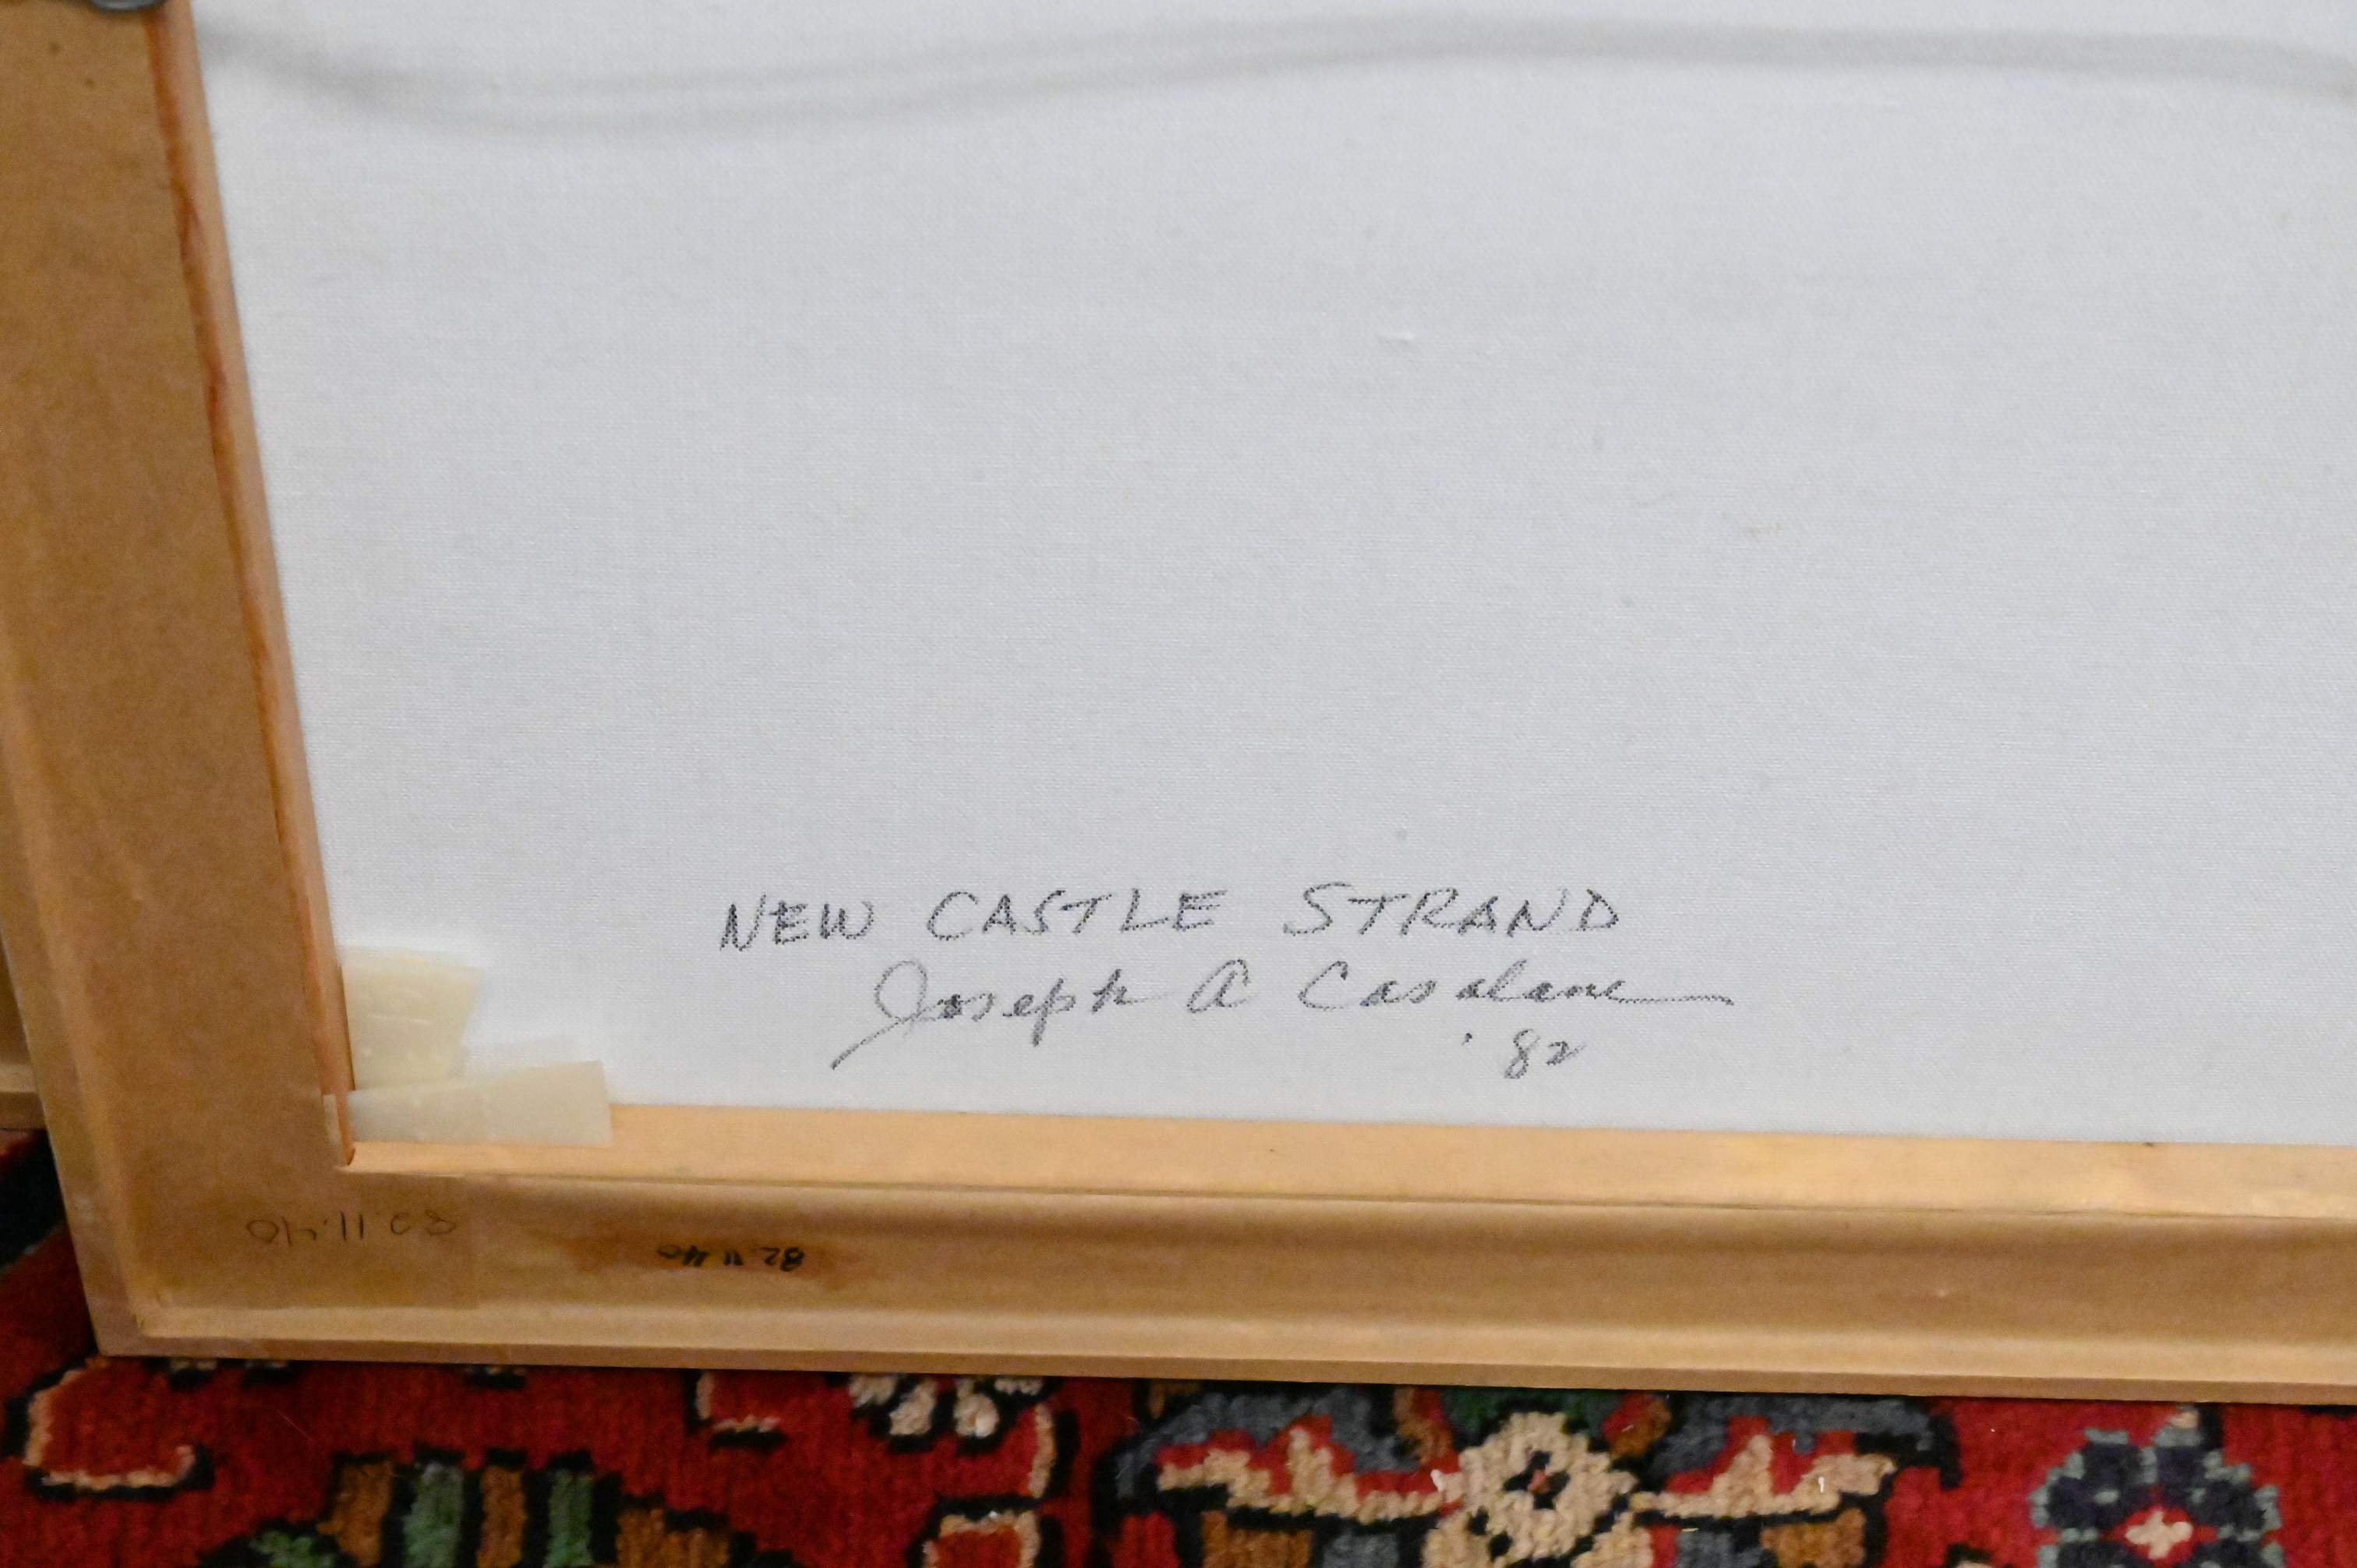 NEW CASTLE STRAND
Joseph A Casalane
'82
82.11.40
82 11 40